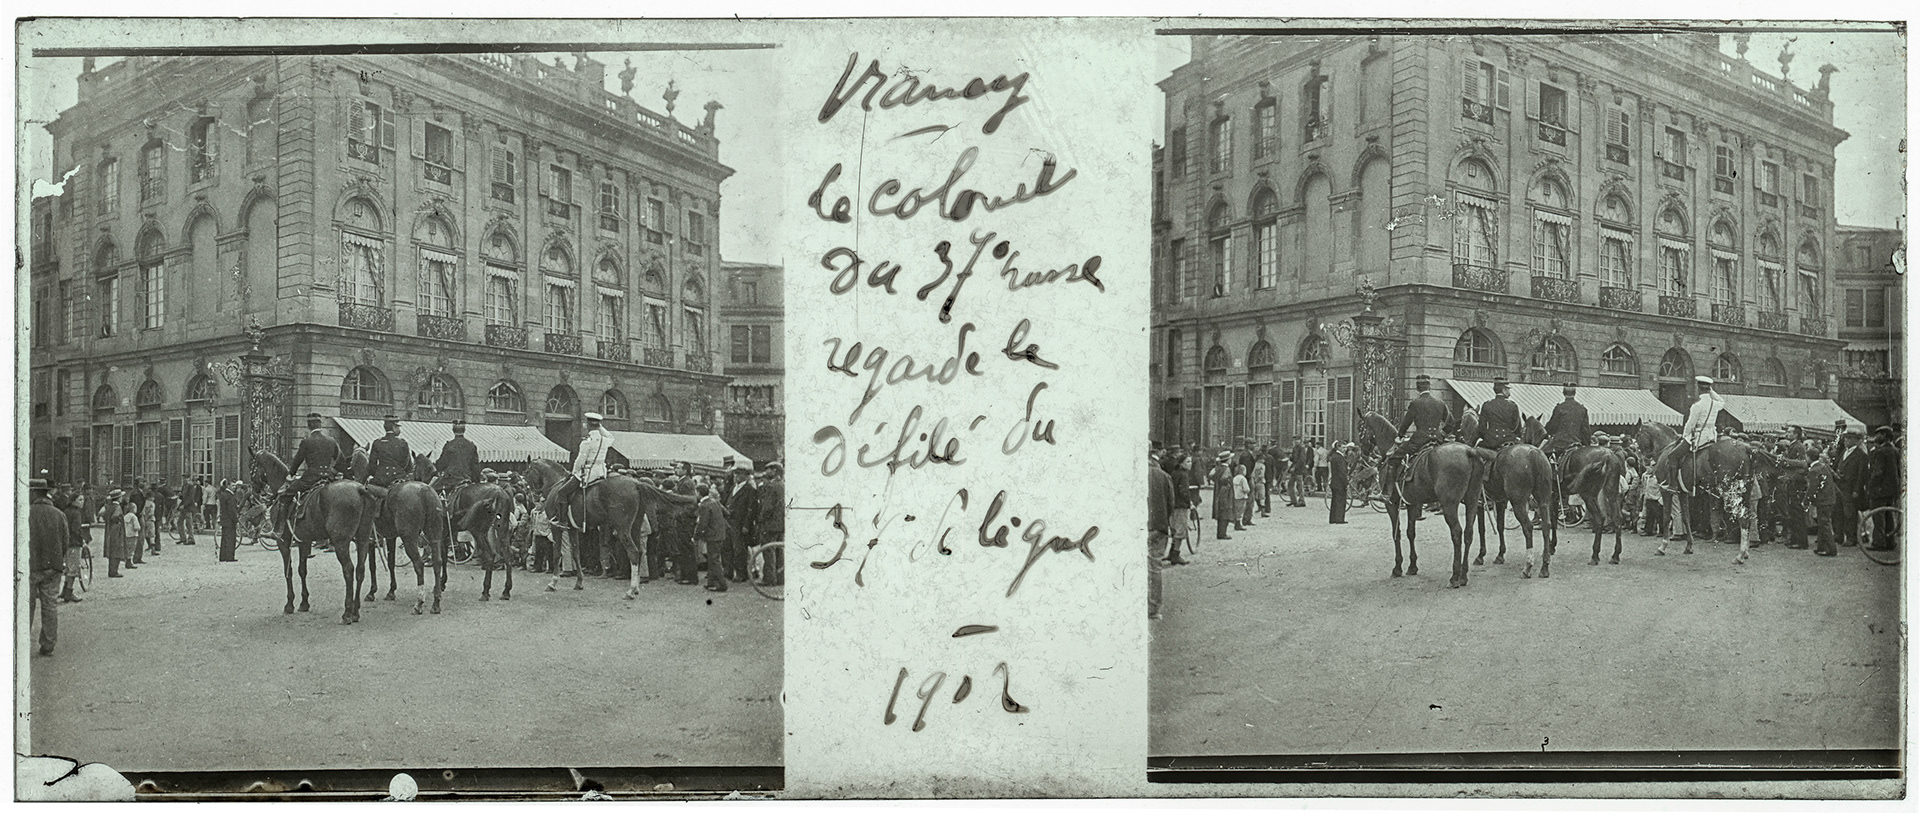 RESTAURANT
Nancy
le colonel
du 37e russe
regarde le
défilé du
37e de ligne
1902
RESTAURANT